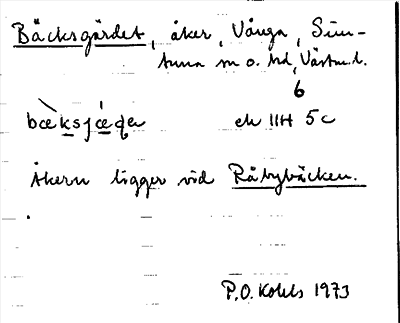 Bäcksgärdet, åker, Vånga, Sim-
tuna sn o. hd, Västml.
6
ek 11H 5c
Åkern ligger vid Råbybäcken.
P.O. Kohls 1973